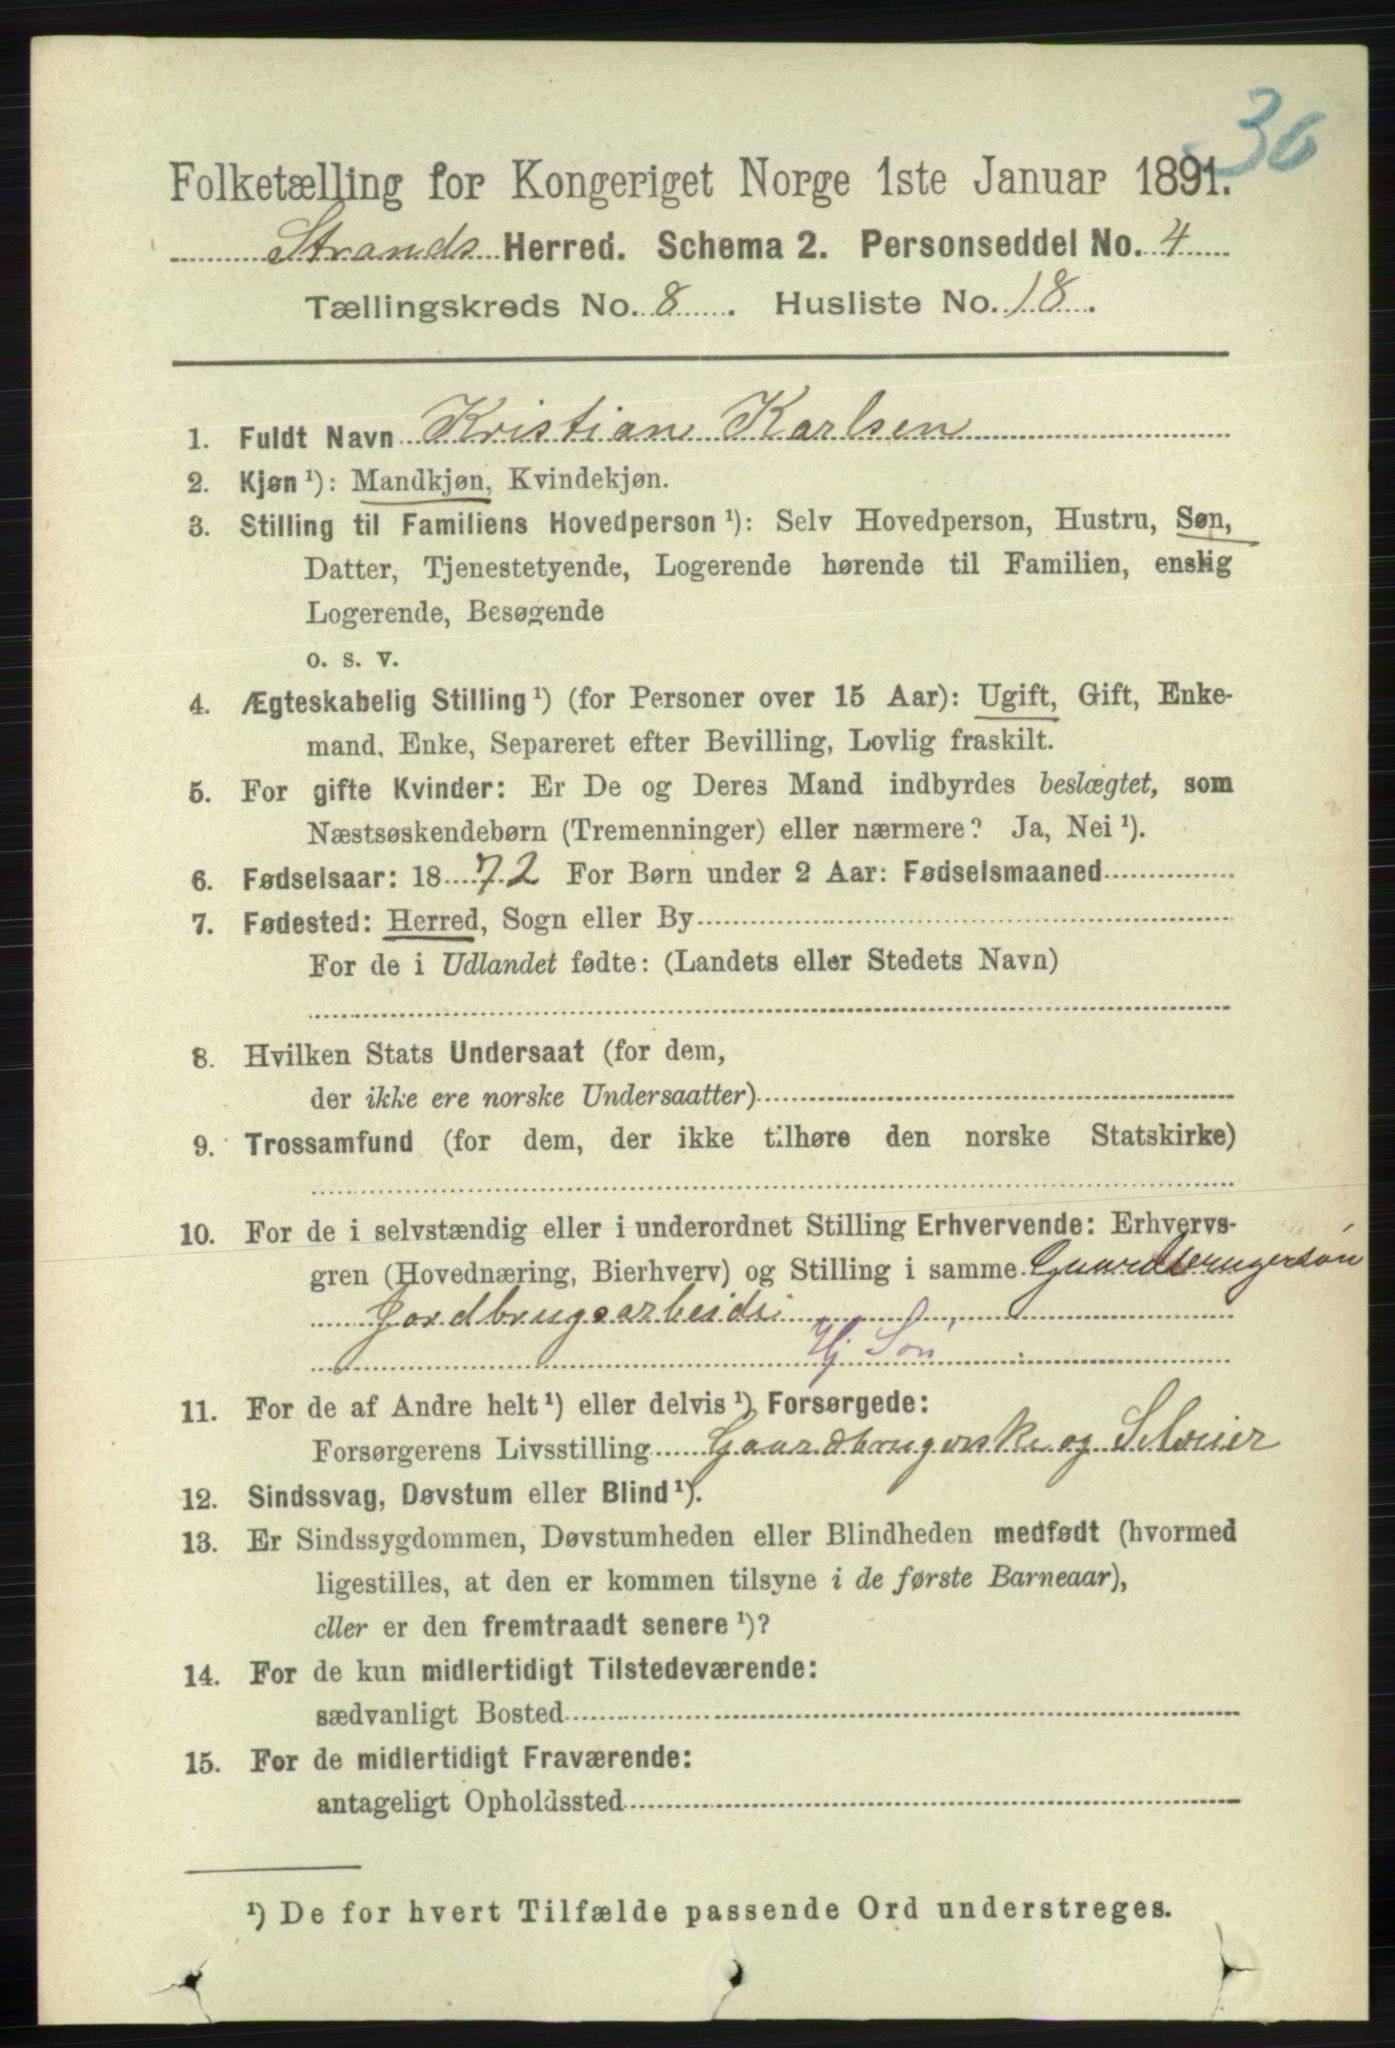 36
Folketælling for Kongeriget Norge 1ste Januar 1891.
Strands Herred. Schema 2. Personseddel No. 4
Tællingskreds No. 8. Husliste No. 18.
1. Fuldt Navn Kristian Karlsen
2. Kjøn ¹): Mandkjøn, Kvindekjøn.
3. Stilling til Familiens Hovedperson ¹): Selv Hovedperson, Hustru, Søn,
Datter, Tjenestetyende, Logerende hørende til Familien, enslig
Logerende, Besøgende
o. s. v.
4. Ægteskabelig Stilling ¹) (for Personer over 15 Aar): Ugift, Gift, Enke-
mand, Enke, Separeret efter Bevilling, Lovlig fraskilt.
5. For gifte Kvinder: Er De og Deres Mand indbyrdes beslægtet, som
Næstsøskendebørn (Tremenninger) eller nærmere? Ja, Nei ¹).
6. Fødselsaar: 1872 For Børn under 2 Aar: Fødselsmaaned
7. Fødested: Herred, Sogn eller By
For de i Udlandet fødte: (Landets eller Stedets Navn)
8. Hvilken Stats Undersaat (for dem,
der ikke ere norske Undersaatter)
9. Trossamfund (for dem, der ikke tilhøre den norske Statskirke)
10. For de i selvstændig eller i underordnet Stilling Erhvervende: Erhvervs-
gren (Hovednæring, Bierhverv) og Stilling i samme Gaardbrugersøn
Jordbrugsarbeide
Hj Søn
11. For de af Andre helt ¹) eller delvis ¹) Forsørgede:
Forsørgerens Livsstilling Gaardbrugerske og Selveier
12. Sindssvag, Døvstum eller Blind ¹).
13. Er Sindssygdommen, Døvstumheden eller Blindheden medfødt (hvormed
ligestilles, at den er kommen tilsyne i de første Barneaar),
eller er den fremtraadt senere ¹)?
14. For de kun midlertidigt Tilstedeværende:
sædvanligt Bosted
15. For de midlertidigt Fraværende:
antageligt Opholdssted
¹) De for hvert Tilfælde passende Ord understreges.